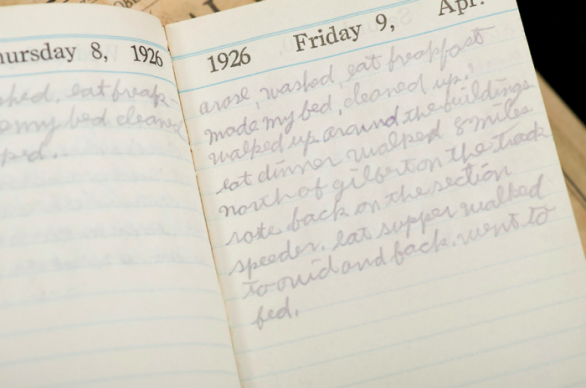 hursday 8, 1926
shed, eat freak-
my bed cleaned
1926 Friday 9, Apr.
arose, washed, eat freapfast
made my bed, cleaned up.
walked up around the buildings
eat dinner walked 8 miles
north of gilbert on the track
rote back on the section
speeder. eat supper walked
to ovid and back. went to
bed.